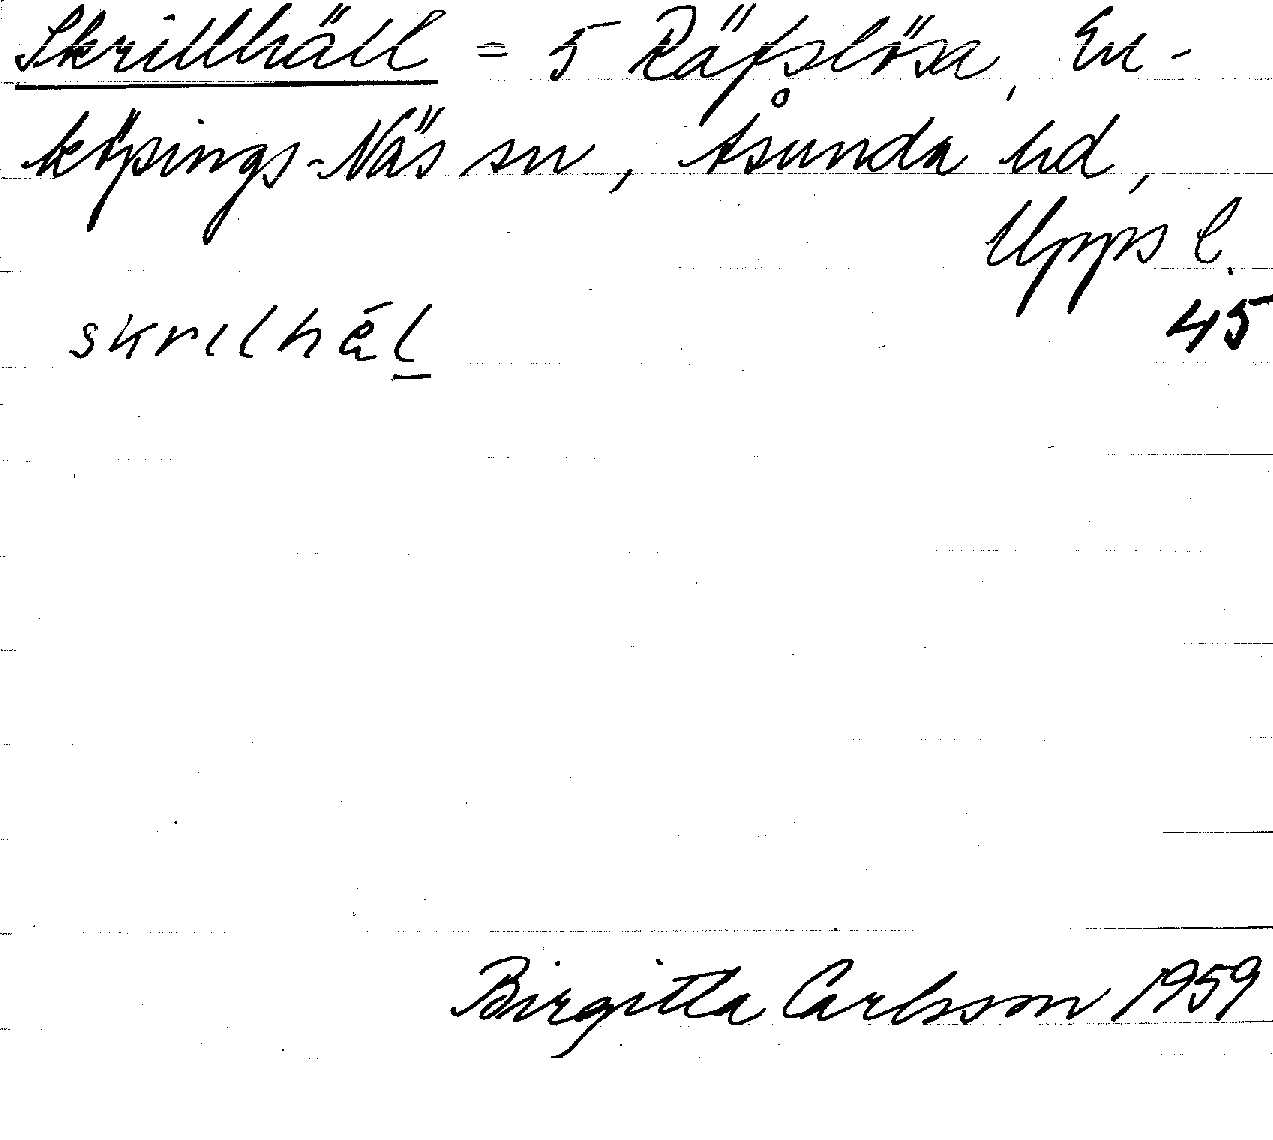 Skrillhäll = 5 Räfslösa, En-
köpings-Näs sn, Åsunda hd,
Upps l.
45
skrilhäl
Birgitta Carlsson 1959